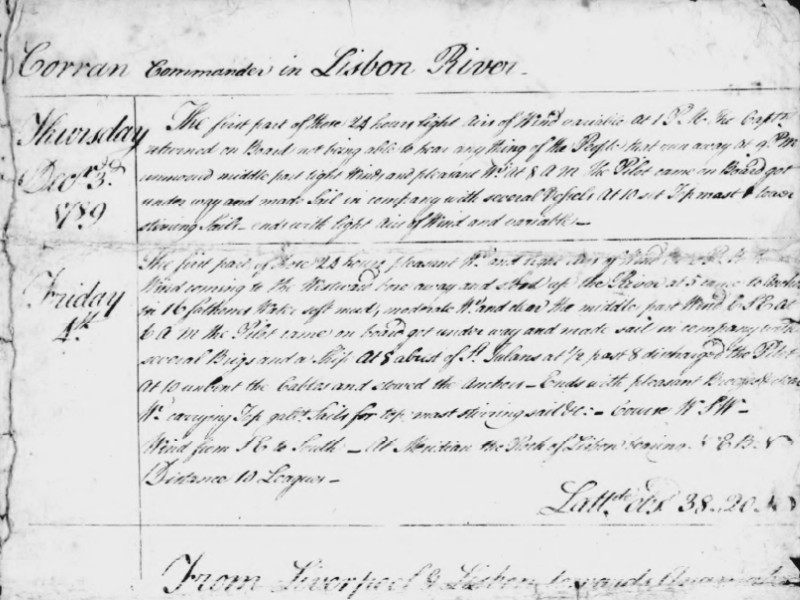 Corran Commander in Lisbon River
Thursday
Decr. 3d.
1789
The first part of these 24 hours light Airs of Wind variable At 1 P.M. the Captn
returned on Board not being able to hear any thing of the People that run away at 9 P m
unmoored middle part light Winds and pleasant Wr. At 8 A M the Pilot came on Board got
under way and made Sail in company with several Vessels At 10 set Top mast & lower
stiering Sails - ends with light Airs of Wind and variable -
Friday
4th.
The first part of these 24 hours pleasant Wr. and light Airs of Wind
Wind coming to the Westward bore away and stood up the River at 5 came to Anchor
in 16 fathoms Water soft mud, moderate Wr. and clear the middle part Wind E S E At
6 A m the Pilot came on board got under way and made sail in company with
several Brigs and a Ship At 8 abrest of St. Julians at 1/2 past 8 discharged the Pilot
At 10 unbent the Cables and stowed the Anchors - Ends with pleasant Breezes & clear
Wr. carrying Top galt. Sails fore top mast stiering sail &c. - Course W S W -
Wind from S E to South - At Meridian the Rock of Lisbon bearing N E B N
Distance 10 Leagues -
Lattde. obsd. 38..20 N
From Liverpool & Lisbon towards